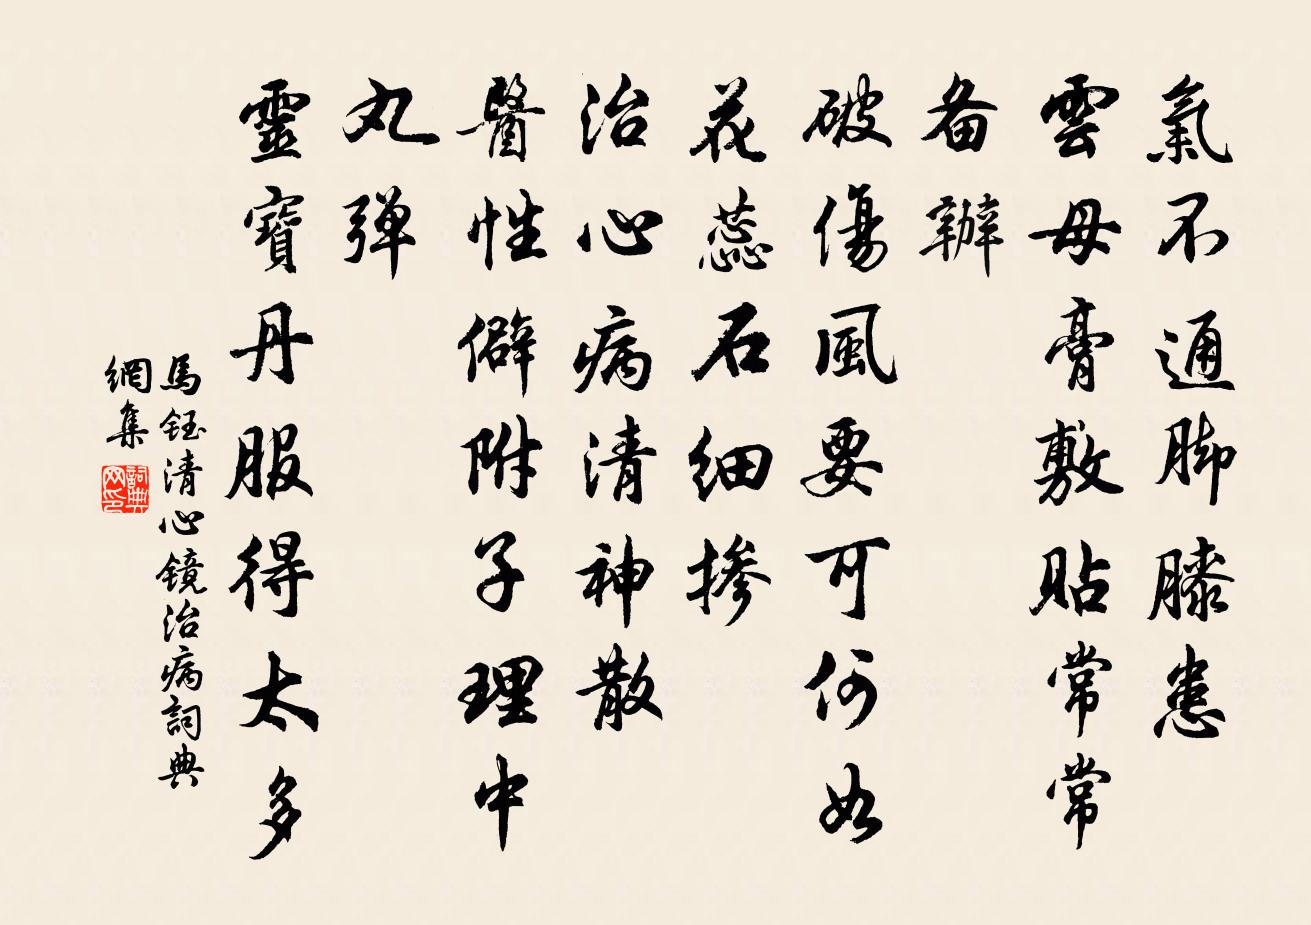 氣不通脚膝患
雲母膏敷貼常常
备辦
破傷風要可何如
花蕊石细掺
治心病清神散
醫性僻附子理中
丸弹
靈寶丹服得太多
馬鈺清心镜治病詞典
網集
詞典
网印